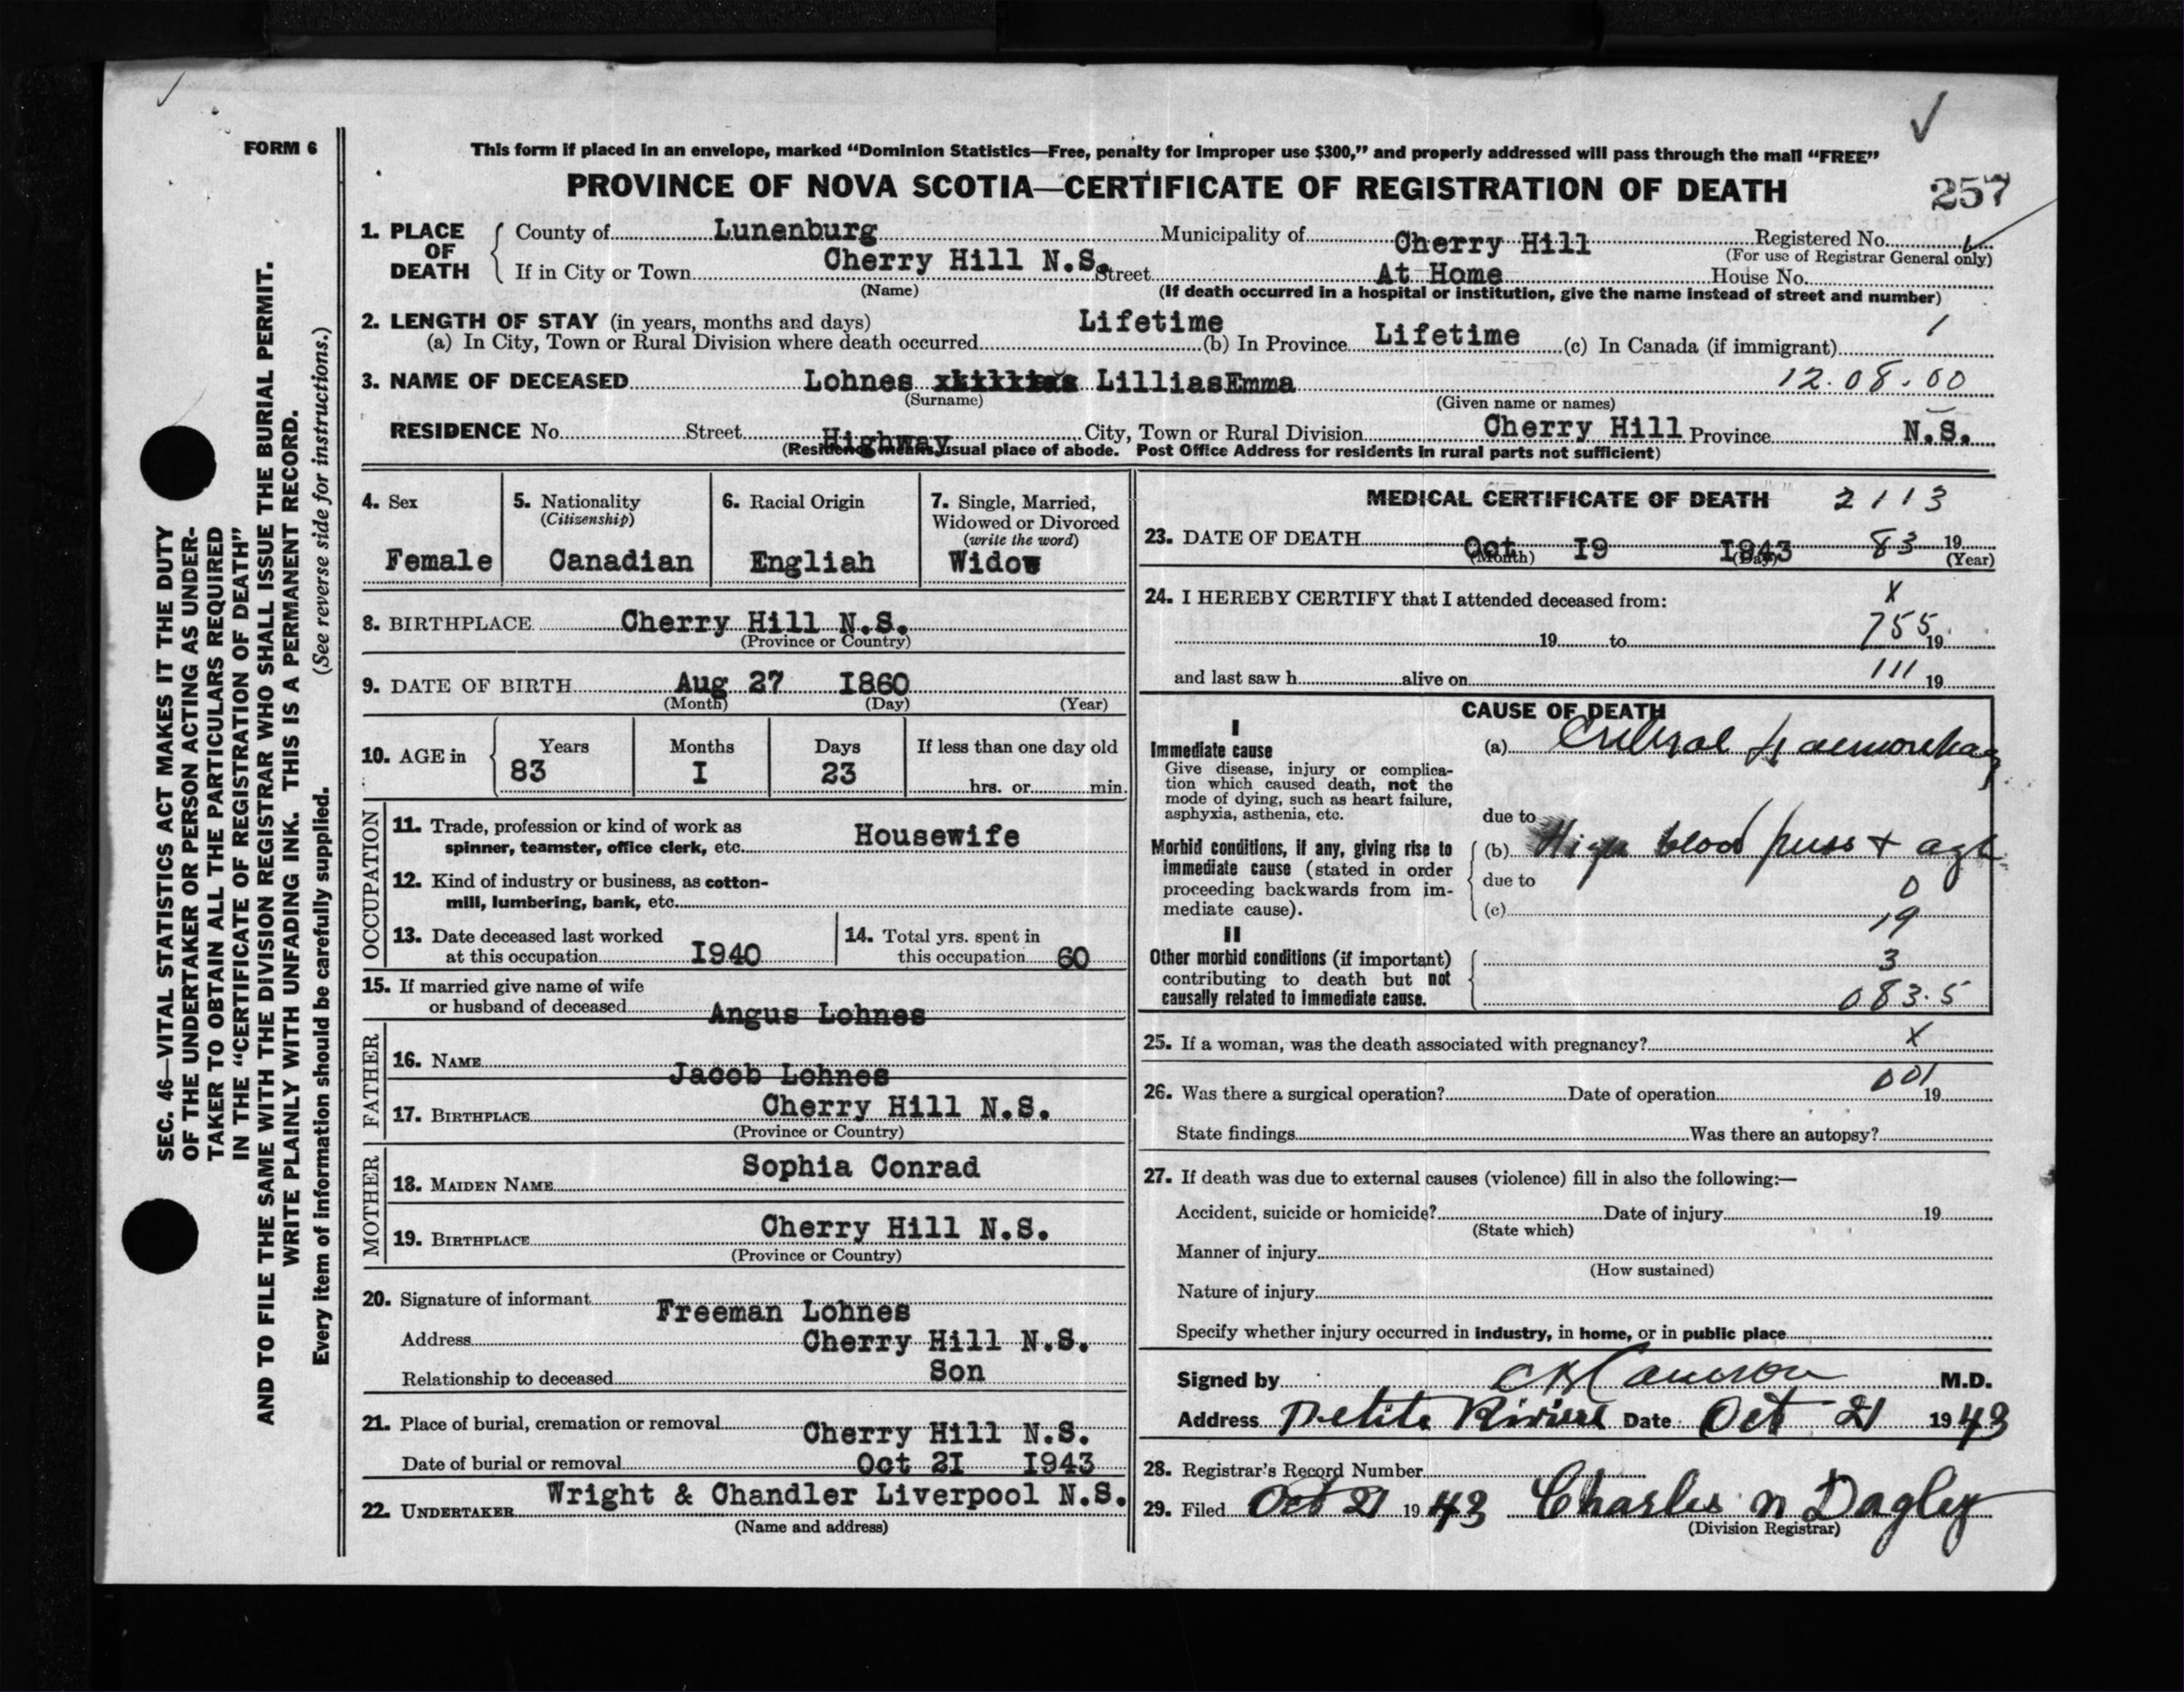 FORM 6
This form if placed in an envelope, marked “Dominion Statistics—Free, penalty for improper use $300,” and properly addressed will pass through the mail “FREE”
PROVINCE OF NOVA SCOTIA—CERTIFICATE OF REGISTRATION OF DEATH
257
1. PLACE OF DEATH
County of Lunenburg Municipality of Cherry Hill Registered No.
(For use of Registrar General only)
If in City or Town Cherry Hill N.S. Street At Home House No.
(Name) (If death occurred in a hospital or institution, give the name instead of street and number)
2. LENGTH OF STAY (in years, months and days)
(a) In City, Town or Rural Division where death occurred Lifetime (b) In Province Lifetime (c) In Canada (if immigrant) 1
3. NAME OF DECEASED Lohnes LilliasEmma 12.08.00
(Surname) (Given name or names)
RESIDENCE No. Street Highway City, Town or Rural Division Cherry Hill Province N.S.
(Residence means usual place of abode. Post Office Address for residents in rural parts not sufficient)
4. Sex
Female
5. Nationality
(Citizenship)
Canadian
6. Racial Origin
Engliah
7. Single, Married, Widowed or Divorced
(write the word)
Widow
8. BIRTHPLACE Cherry Hill N.S.
(Province or Country)
9. DATE OF BIRTH Aug 27 I860
(Month) (Day) (Year)
10. AGE in Years Months Days If less than one day old
83 I 23 hrs. or min.
OCCUPATION
11. Trade, profession or kind of work as
spinner, teamster, office clerk, etc. Housewife
12. Kind of industry or business, as cotton-
mill, lumbering, bank, etc.
13. Date deceased last worked
at this occupation I940
14. Total yrs. spent in
this occupation 60
15. If married give name of wife
or husband of deceased Angus Lohnes
FATHER
16. NAME Jacob Lohnes
17. BIRTHPLACE Cherry Hill N.S.
(Province or Country)
MOTHER
18. MAIDEN NAME Sophia Conrad
19. BIRTHPLACE Cherry Hill N.S.
(Province or Country)
20. Signature of informant Freeman Lohnes
Address Cherry Hill N.S.
Relationship to deceased Son
21. Place of burial, cremation or removal Cherry Hill N.S.
Date of burial or removal Oct 2I I943
22. UNDERTAKER Wright & Chandler Liverpool N.S.
(Name and address)
MEDICAL CERTIFICATE OF DEATH 2113
23. DATE OF DEATH Oct I9 I843 83 19
(Month) (Day) (Year)
24. I HEREBY CERTIFY that I attended deceased from: X
19 to 755 19
and last saw h alive on 111 19
CAUSE OF DEATH
I
Immediate cause
Give disease, injury or complica-
tion which caused death, not the
mode of dying, such as heart failure,
asphyxia, asthenia, etc.
(a) Haemorrhag
due to
Morbid conditions, if any, giving rise to
immediate cause (stated in order
proceeding backwards from im-
mediate cause).
(b) High blood press + age
due to 0
(c) 19
II
Other morbid conditions (if important)
contributing to death but not
causally related to immediate cause.
3
083.5
25. If a woman, was the death associated with pregnancy? X
26. Was there a surgical operation? Date of operation 001 19
State findings Was there an autopsy?
27. If death was due to external causes (violence) fill in also the following:—
Accident, suicide or homicide? Date of injury 19
(State which)
Manner of injury
(How sustained)
Nature of injury
Specify whether injury occurred in industry, in home, or in public place
Signed by Cameron M.D.
Address Petite Riviere Date Oct 21 1943
28. Registrar's Record Number
29. Filed Oct 21 1943 Charles N Dagley
(Division Registrar)
SEC. 46—VITAL STATISTICS ACT MAKES IT THE DUTY
OF THE UNDERTAKER OR PERSON ACTING AS UNDER-
TAKER TO OBTAIN ALL THE PARTICULARS REQUIRED
IN THE “CERTIFICATE OF REGISTRATION OF DEATH”
AND TO FILE THE SAME WITH THE DIVISION REGISTRAR WHO SHALL ISSUE THE BURIAL PERMIT.
WRITE PLAINLY WITH UNFADING INK. THIS IS A PERMANENT RECORD.
Every item of information should be carefully supplied. (See reverse side for instructions.)